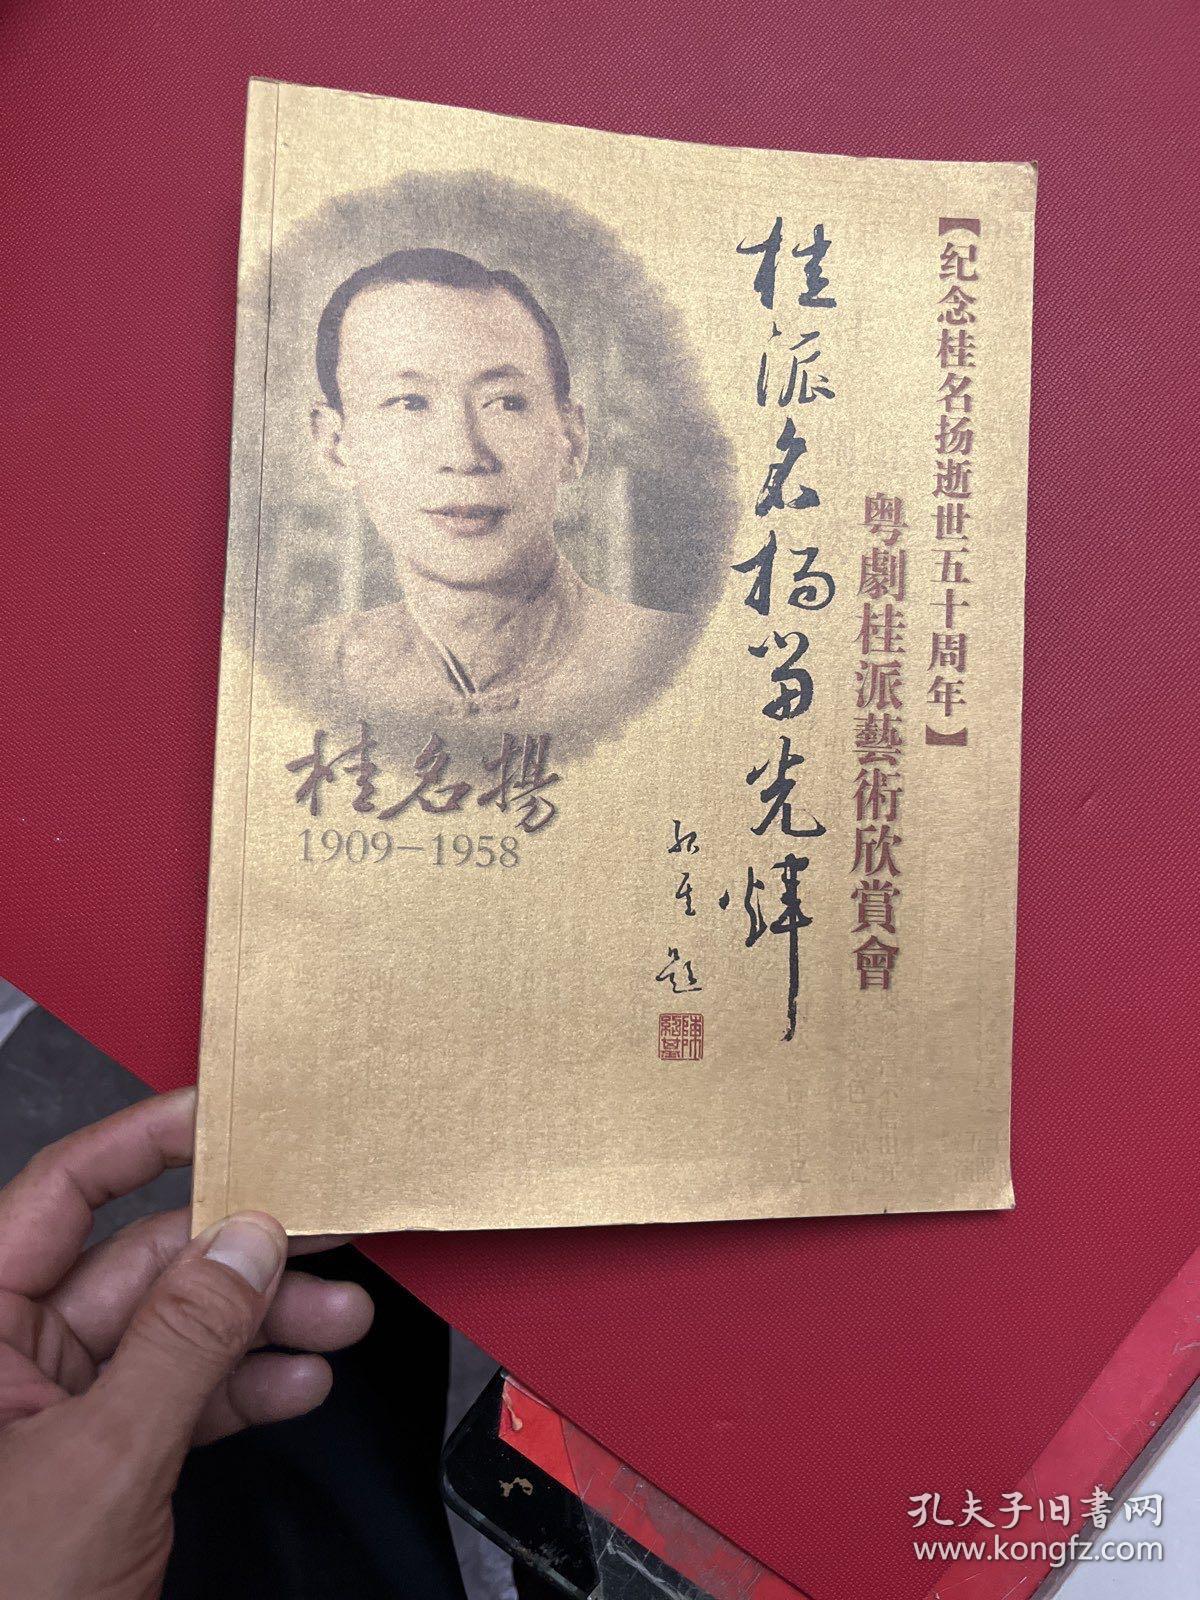 【纪念桂名扬逝世五十周年】
粤劇桂派藝術欣賞會
桂派名揚留光煒
紹基題
陳紹基
桂名揚
1909-1958
孔夫子旧书网
www.kongfz.com